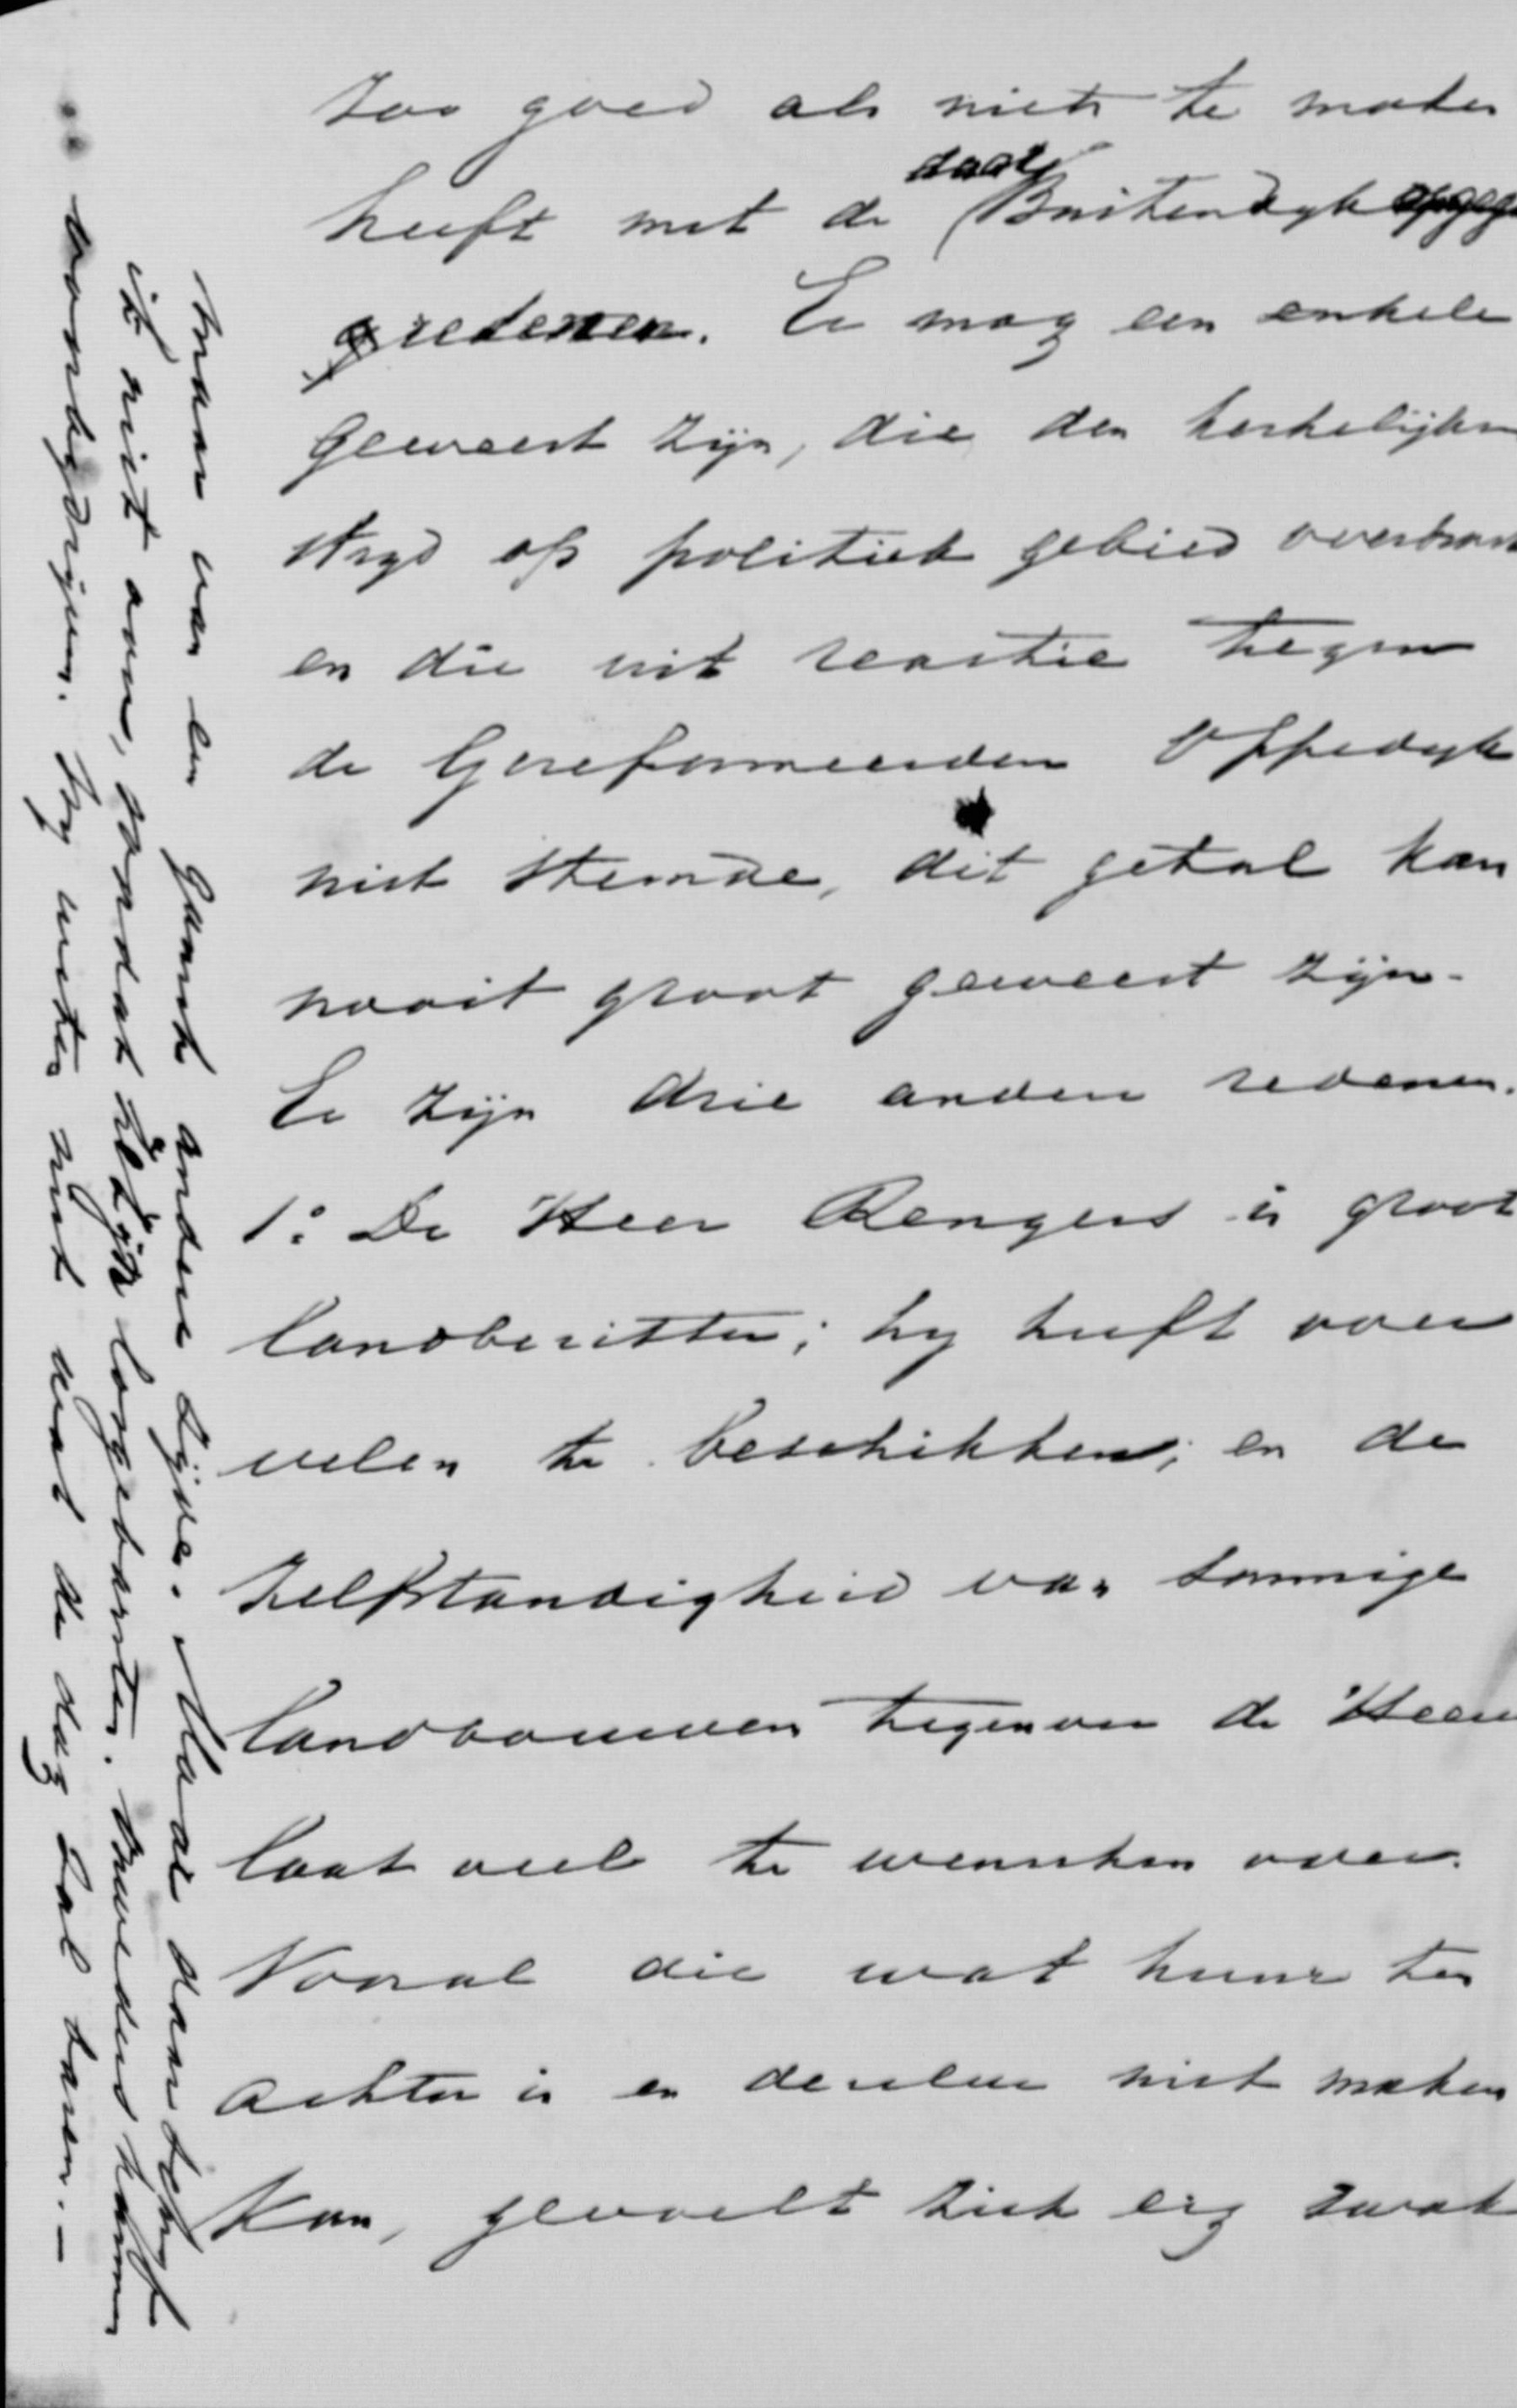 zoo goed als niets te maken
heeft met de daar Buitendyk opgege
redenen. Er mag een enkele
geweest zijn, die den kerkelijken
stryd op politiek gebied overbracht
en die uit reactie tegen
de Gereformeerden Oppedyk
niet stemde, dit getal kan
nooit groot geweest zijn.
Er zijn drie andere redenen.
1o. De Heer Rengers is groot
landbezitter; hy heeft over
velen te beschikken; en de
zelfstandigheid van sommige
landbouwers tegenover de Heer
laat veel te wenschen over.
Vooral die wat huur ten
achter is en dezelve niet maken
kan, gevoelt zich erg zwak
maar van een gansch andere zijde. Maar daar behoef
ik niet aan, omdat het zijn loopebaarten. Bovendien kunnen
voorbedrijven. Wy weten niet wat de dag zal baren. —